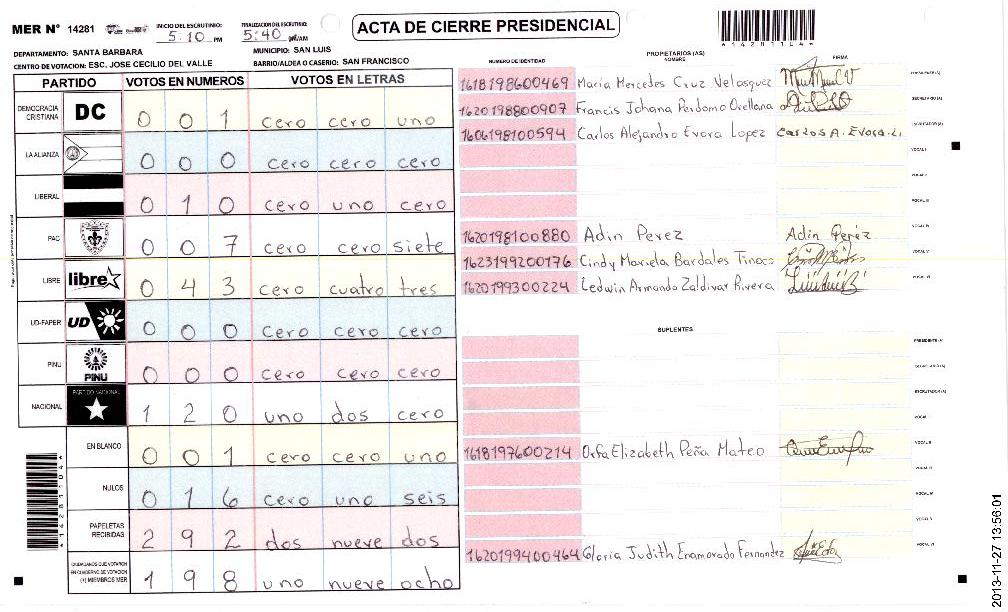 MER N° 14281 INICIO DEL ESCRUTINIO: 5:10 PM FINALIZACION DEL ESCRUTINIO: 5:40 PM/AM ACTA DE CIERRE PRESIDENCIAL
*14281104*
DEPARTAMENTO: SANTA BARBARA MUNICIPIO: SAN LUIS
CENTRO DE VOTACION: ESC. JOSE CECILIO DEL VALLE BARRIO/ALDEA O CASERIO: SAN FRANCISCO
PARTIDO VOTOS EN NUMEROS VOTOS EN LETRAS
DEMOCRACIA CRISTIANA DC 0 0 1 cero cero uno
LA ALIANZA 0 0 0 cero cero cero
LIBERAL 0 1 0 cero uno cero
PAC 0 0 7 cero cero siete
LIBRE libre 0 4 3 cero cuatro tres
UD-FAPER UD 0 0 0 cero cero cero
PINU PINU 0 0 0 cero cero cero
NACIONAL PARTIDO NACIONAL 1 2 0 uno dos cero
EN BLANCO 0 0 1 cero cero uno
NULOS 0 1 6 cero uno seis
PAPELETAS RECIBIDAS 2 9 2 dos nueve dos
CIUDADANOS QUE VOTARON EN CUADERNO DE VOTACION (+) MIEMBROS MER 1 9 8 uno nueve ocho
PROPIETARIOS (AS)
NUMERO DE IDENTIDAD NOMBRE FIRMA
1618198600469 Maria Mercedes Cruz Velasquez PRESIDENTE (A)
1620198800907 Francis Johana Perdomo Orellana SECRETARIO (A)
1606198100594 Carlos Alejandro Evora Lopez Carlos A. Evora. L. ESCRUTADOR (A)
VOCAL I
VOCAL II
VOCAL III
1620198100880 Adin Perez Adin Perez VOCAL IV
1623199200176 Cindy Mariela Bardales Tinoco VOCAL V
1620199300224 Ledwin Armando Zaldivar Rivera VOCAL VI
SUPLENTES
PRESIDENTE (A)
SECRETARIO (A)
ESCRUTADOR (A)
VOCAL I
1618197600214 Orfa Elizabeth Peña Mateo VOCAL II
VOCAL III
VOCAL IV
VOCAL V
1620199400464 Gloria Judith Enamorado Fernandez VOCAL VI
*14281104*
2013-11-27 13:56:01